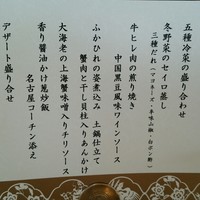 五種冷菜の盛り合わせ
冬野菜のセイロ蒸し
三種だれ(マヨネーズ・辛味山椒・白ポン酢)
牛ヒレ肉の煎り焼き
中国黒豆風味ワインソース
ふかひれの姿煮込み 土鍋仕立て
蟹肉と干し貝柱入りあんかけ
大海老の上海蟹味噌入りチリソース
香り醤油かけ葱炒飯
名古屋コーチン添え
デザート盛り合せ